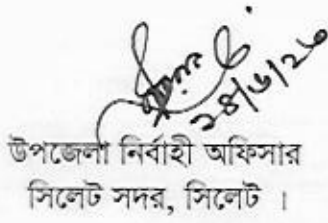 ২৪/৬/২৩
উপজেলা নির্বাহী অফিসার
সিলেট সদর, সিলেট ।